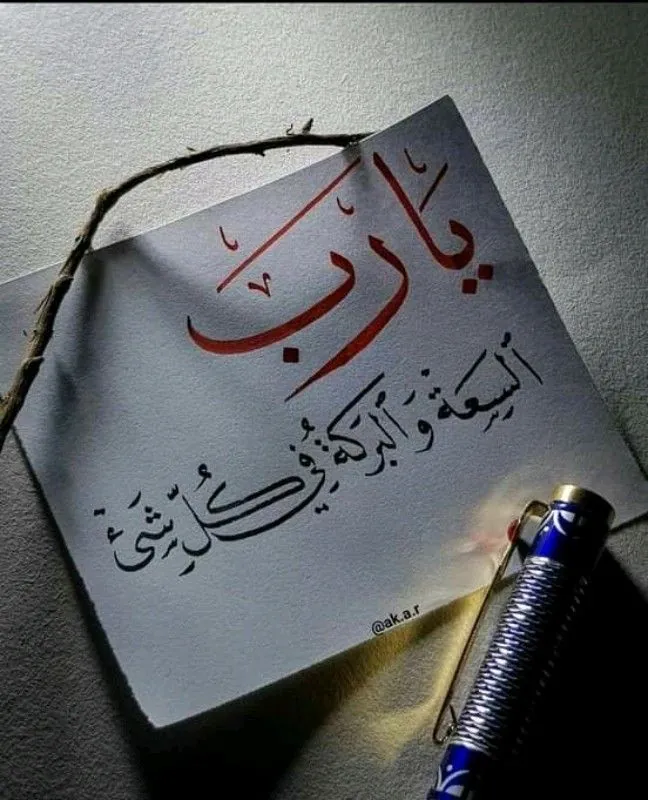 يَارَبَ
ٱلسِعَة وَٱلبَركَة فيِ كُلِّ شَئ
@ak.a.r